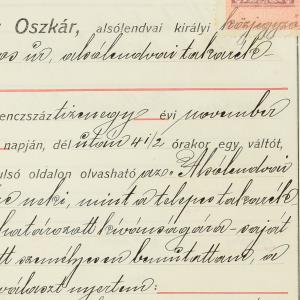 közjegyző
Oszkár, alsólendvai királyi
os úr, alsólendvai takarék-
enczszáz tizenegy évi november
napján, dél után 4 1/2 órakor egy váltót,
ulsó oldalon olvasható az Alsólendvai
neki, mint a telepes takarék
határozott kivánságára-saját
tt személyesen bemutattam, a
választ nyertem: